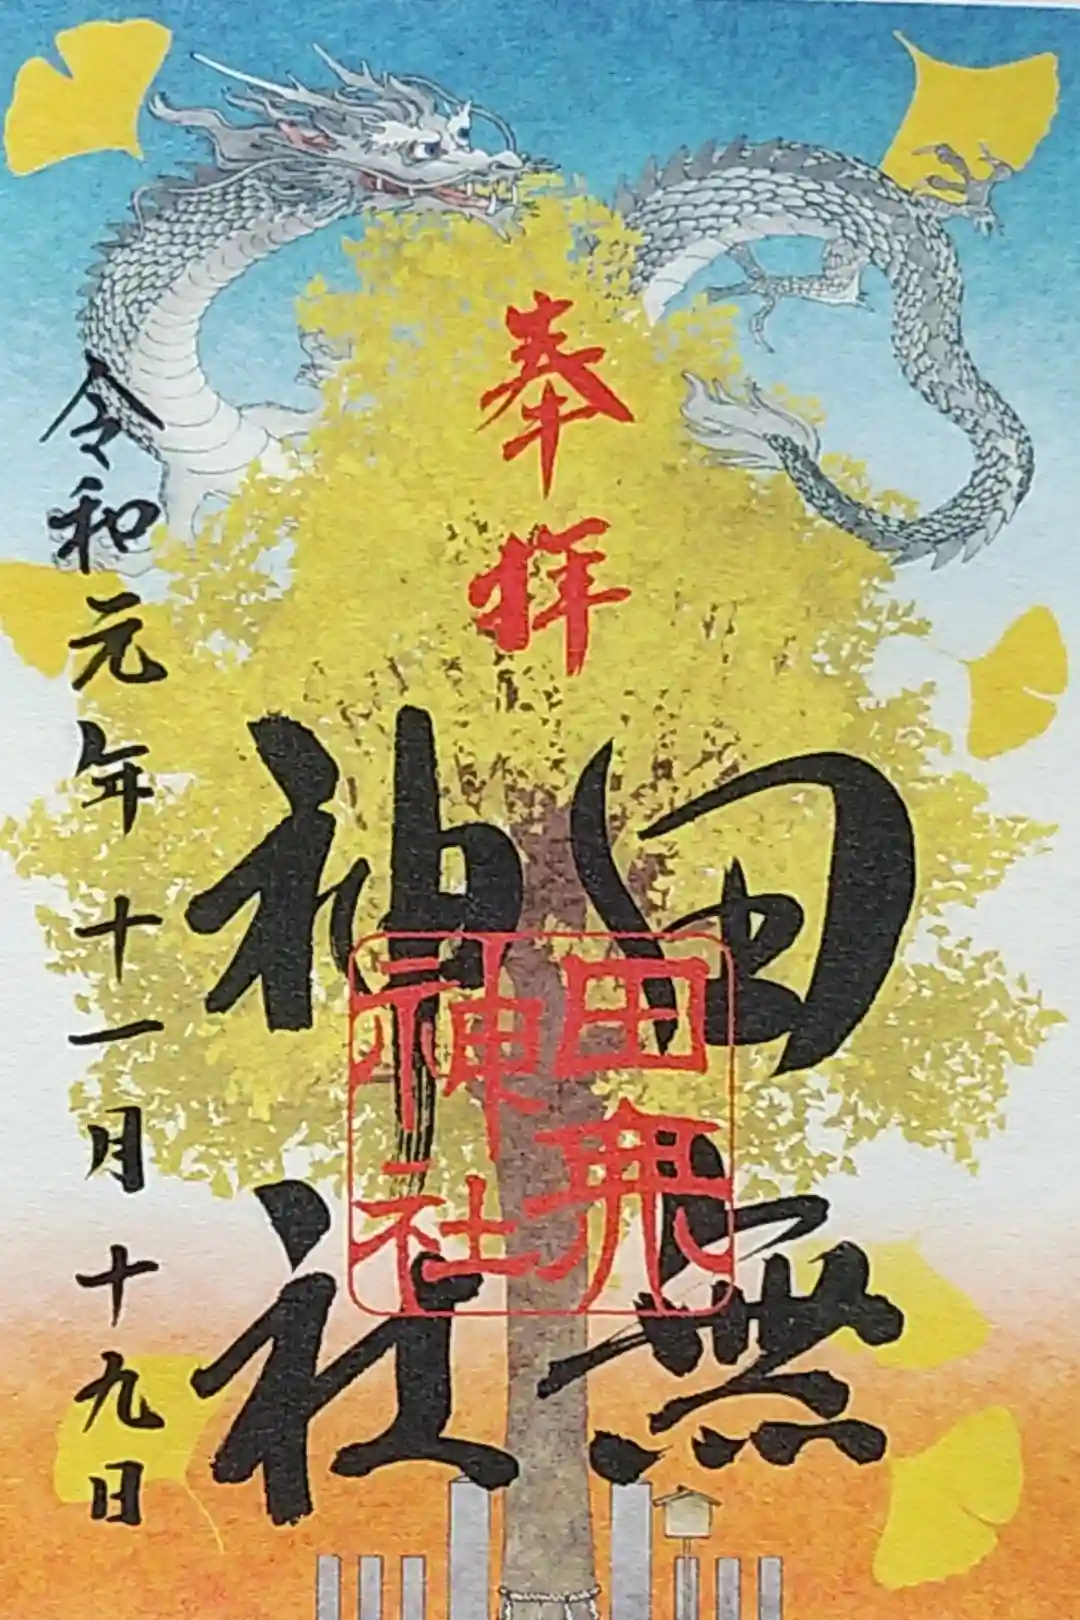 奉拝
田無
神社
田無
神社
令和元年十一月十九日